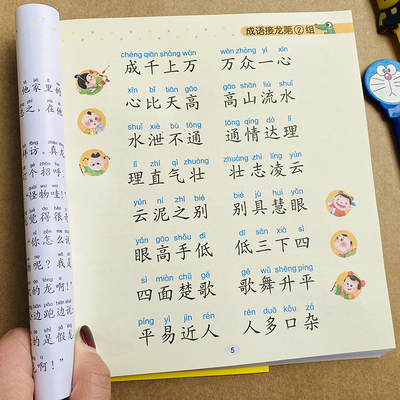 成语接龙第②组
chéng qiān shàng wàn wàn zhòng yì xīn
成千上万 万众一心
xīn bǐ tiān gāo gāo shān liú shuǐ
心比天高 高山流水
shuǐ xiè bù tōng tōng qíng dá lǐ
水泄不通 通情达理
lǐ zhí qì zhuàng zhuàng zhì líng yún
理直气壮 壮志凌云
yún ní zhī bié bié jù huì yǎn
云泥之别 别具慧眼
yǎn gāo shǒu dī dī sān xià sì
眼高手低 低三下四
sì miàn chǔ gē gē wǔ shēng píng
四面楚歌 歌舞升平
píng yì jìn rén rén duō kǒu zá
平易近人 人多口杂
5
他家里的
之，在他
拜访。真龙
个招呼，
怪物哇！”
觉得很很
“你怎么说
物呢？我是
的龙啊！”
边跑边说
的是假龙
啊！”